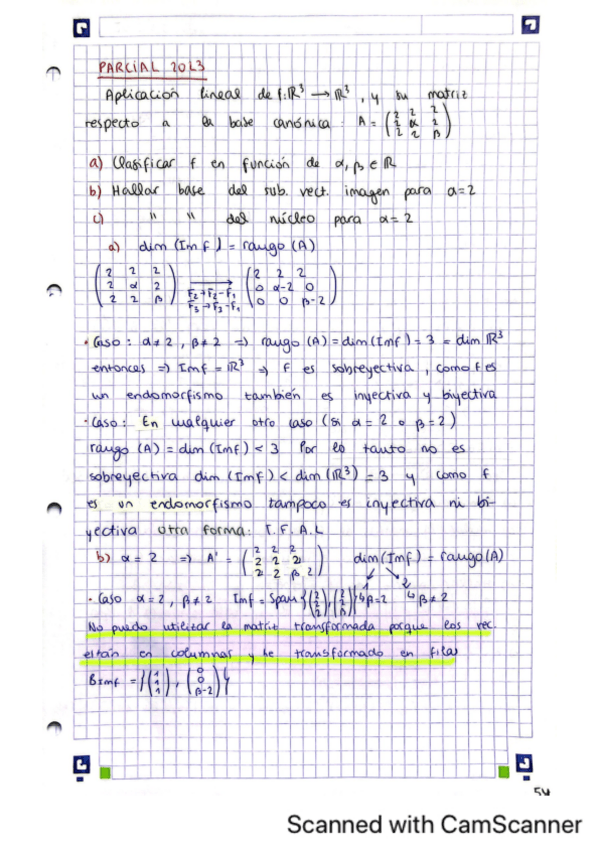 PARCIAL 2023
Aplicación lineal de f: ℝ³ → ℝ³, y su matriz
respecto a la base canónica A = (2 2 2 / 2 α 2 / 2 2 β)
a) Clasificar f en función de α, β ∈ ℝ
b) Hallar base del sub. vect. imagen para α=2
c) " " del núcleo para α=2
a) dim (Im f) = rango (A)
(2 2 2 / 2 α 2 / 2 2 β) → F₂→F₂-F₁ F₃→F₃-F₁ (2 2 2 / 0 α-2 0 / 0 0 β-2)
· Caso: α≠2, β≠2 ⇒ rango (A) = dim(Imf) = 3 = dim ℝ³
entonces ⇒ Imf = ℝ³ ⇒ f es sobreyectiva, como f es
un endomorfismo también es inyectiva y biyectiva
· Caso: En cualquier otro caso (si α = 2 o β=2)
rango (A) = dim (Imf) < 3 Por lo tanto no es
sobreyectiva dim (Imf) < dim (ℝ³) = 3 y como f
es un endomorfismo tampoco es inyectiva ni bi-
yectiva otra forma: T.F.A.L
b) α = 2 ⇒ A' = (2 2 2 / 2 2 2 / 2 2 β 2) dim(Imf) = rango(A)
· Caso α=2, β≠2 Imf = Span{(2 2 2), (2 2 β)} ↳β=2 2 ↳β≠2
No puedo utilizar la matriz transformada porque los vec.
están en columnas y he transformado en filas
B Imf = {(1 1 1), (0 0 β-2)}
54
Scanned with CamScanner